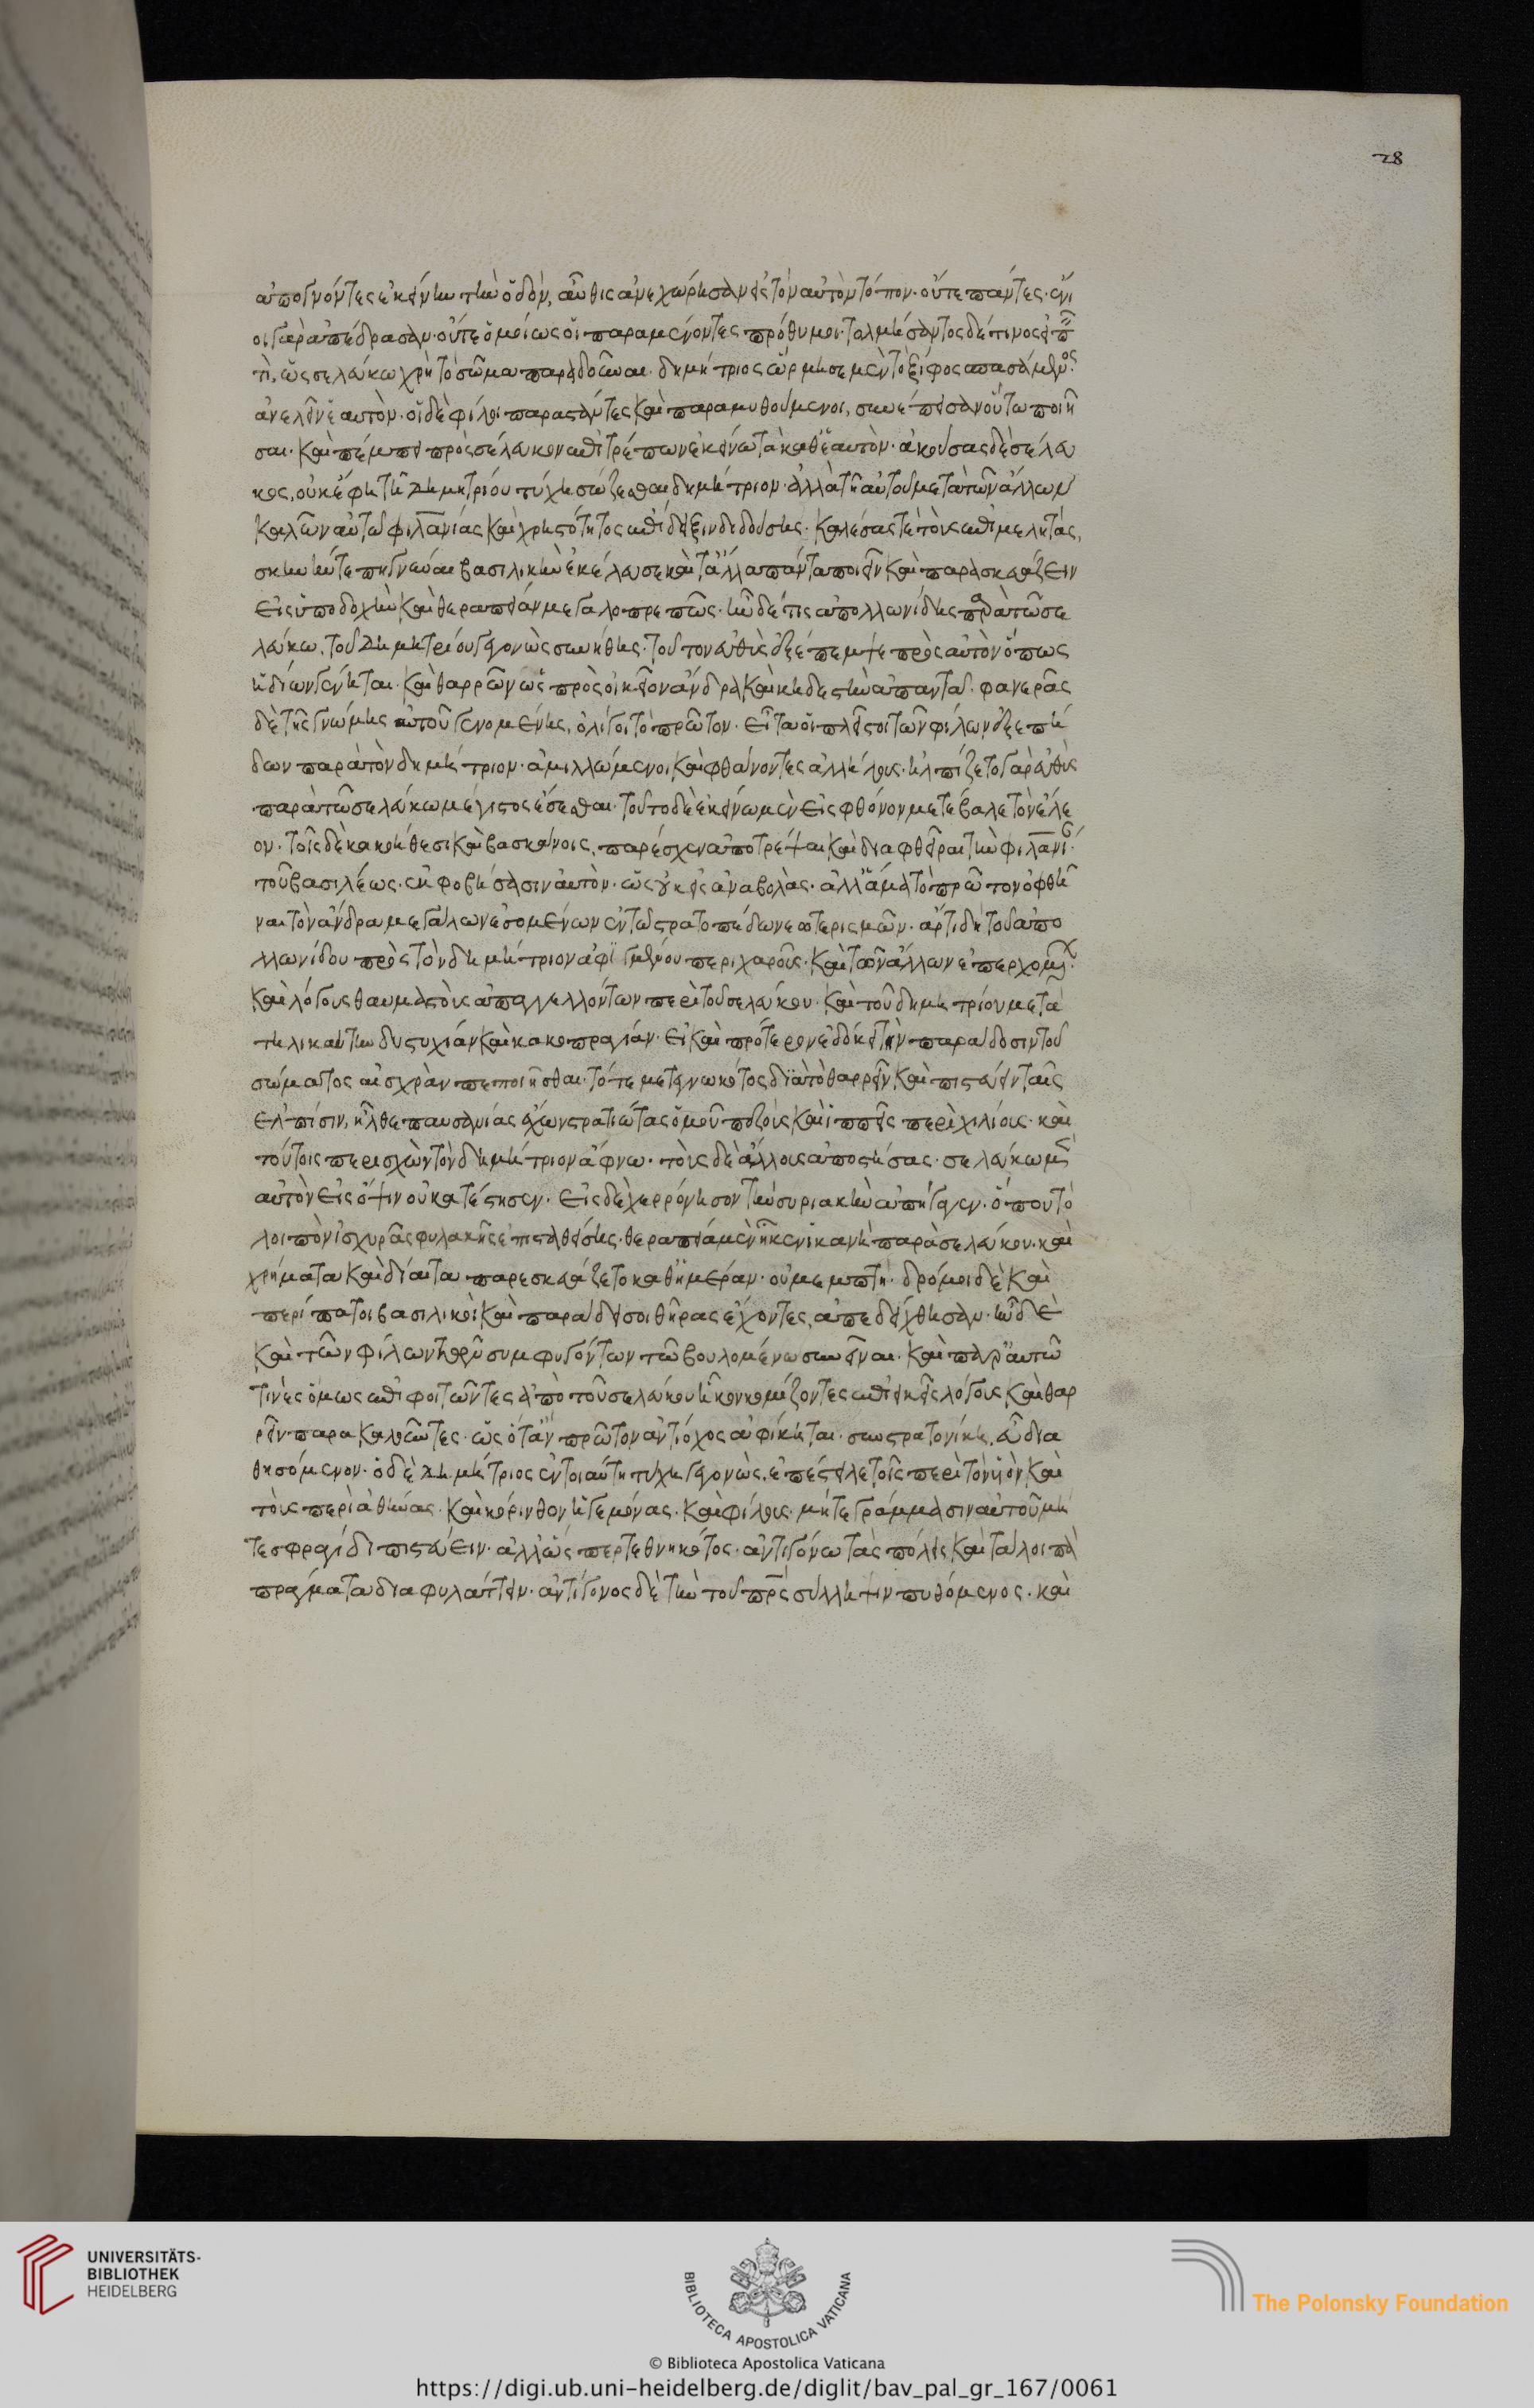 28
ἀπογνόντες ἐκείνην τὴν ὁδὸν, αὖθις ἀνεχώρησαν εἰς τὸν αὐτὸν τόπον· οὔτε πάντες· ἔνι
οι γὰρ ἀπέδρασαν· οὔτε ὁμοίως οἱ παραμένοντες πρόθυμοι· τολμήσαντος δέ τινος εἰπ
τι, ὡς σελεύκω χρὴ τὸ σῶμα παραδοῦναι· δημήτριος ὥρμησε μὲν τὸ ξίφος σπασάμενος
ἀνελεῖν ἑαυτὸν· οἱ δὲ φίλοι παραστάντες καὶ παραμυθούμενοι, συνέπεισαν οὕτω ποιῆ
σαι· καὶ πέμπει πρὸς σέλευκον ἐπιτρέπων ἐκείνω τὰ καθ ἑαυτὸν· ἀκούσας δὲ σέλευ
κος, οὐκ ἔφη τῆ δημητρίου τύχη σώζεσθαι δημήτριον· ἀλλὰ τῆ αὐτοῦ μετὰ τῶν ἄλλων
καλῶν αὐτῶ φιλανίας καὶ χρηστότητος ἐπίδειξιν διδούσης· καλέσας τε τοὺς ἐπιμελητὰς,
σκηνήν τε πηγνύναι βασιλικὴν ἐκέλευσε καὶ τἄλλα πάντα ποιεῖν καὶ παρασκευάζειν
εἰς ὑποδοχὴν καὶ θεραπείαν μεγαλοπρεπῶς· ἦν δέ τις ἀπολλωνίδης παρὰ τῶ σε
λεύκω, τοῦ δημητρίου γεγονὼς συνήθης· τοῦτον εὐθὺς ἐξέπεμψε πρὸς αὐτὸν ὅπως
ἡδίων γένηται· καὶ θαρρῶν ὡς πρὸς οἰκεῖον ἄνδρα καὶ κηδεστὴν ἀπαντᾶ· φανερᾶς
δὲ τῆς γνώμης αὐτοῦ γενομένης, ὀλίγοι τὸ πρῶτον· εἶτα οἱ πλεῖστοι τῶν φίλων ἐξεπή
δων παρὰ τὸν δημήτριον· ἁμιλλώμενοι καὶ φθάνοντες ἀλλήλους· ἠλπίζετο γὰρ εὐθὺς
παρὰ τῶ σελεύκω μέγιστος ἔσεσθαι· τοῦτο δὲ ἐκείνω μὲν εἰς φθόνον μετέβαλε τὸν ἔλε
ον· τοῖς δὲ κακοήθεσι καὶ βασκάνοις, παρέσχεν ἀποτρέψαι καὶ διαφθεῖραι τὴν φιλανί
τοῦ βασιλέως· ἐκφοβήσασιν αὐτὸν· ὡς οὐκ εἰς ἀναβολὰς· ἀλλ ἅμα τὸ πρῶτον ὀφθῆ
ναι τὸν ἄνδρα μεγάλων ἐσομένων ἐν τῶ στρατοπέδω νεωτερισμῶν· ἄρτι δὴ τοῦ ἀπο
λλωνίδου πρὸς τὸν δημήτριον ἀφϊγμένου περιχαροῦς· καὶ τῶν ἄλλων ἐπερχομέν
καὶ λόγους θαυμαστοὺς ἀπαγγελλόντων περὶ τοῦ σελεύκου· καὶ τοῦ δημητρίου μετὰ
τηλικαύτην δυστυχίαν καὶ κακοπραγίαν· εἰ καὶ πρότερον ἐδόκει τὴν παράδοσιν τοῦ
σώματος αἰσχρὰν πεποιῆσθαι· τότε μετεγνωκότος διὰ τὸ θαρρεῖν καὶ πιστεύειν ταῖς
ἐλπίσιν, ἦλθε παυσανίας ἔχων στρατιώτας ὁμοῦ πεζοὺς καὶ ἱππεῖς περὶ χιλίους· καὶ
τούτοις περισχὼν τὸν δημήτριον ἄφνω· τοὺς δὲ ἄλλους ἀποστήσας· σελεύκω μὲν
αὐτὸν εἰς ὄψιν οὐ κατέστησεν· εἰς δὲ χερρόνησον τὴν συριακὴν ἀπήγαγεν· ὅπου τὸ
λοιπὸν ἰσχυρᾶς φυλακῆς ἐπισταθείσης· θεραπεία μὲν ἧκεν ἱκανὴ παρὰ σελεύκου· καὶ
χρήματα καὶ δίαιτα παρεσκευάζετο καθ ἡμέραν· οὐ μεμπτὴ· δρόμοι δὲ καὶ
περίπατοι βασιλικοὶ καὶ παράδεισοι θῆρας ἔχοντες, ἀπεδείχθησαν· ἦν δὲ
καὶ τῶν φίλων τῶν συμφυγόντων τῶ βουλομένω συνεῖναι· καὶ παρ αὐτῶ
τινὲς ὅμως ἐπιφοιτῶντες ἀπὸ τοῦ σελεύκου ἧκον κομίζοντες ἐπιεικεῖς λόγους καὶ θαρ
ρεῖν παρακαλοῦντες· ὡς ὅταν πρῶτον ἀντίοχος ἀφίκηται· συν στρατονίκη, εὖ δια
θησόμενον· ὁ δὲ δημήτριος ἐν τοιαύτη τύχη γεγονὼς, ἐπέστειλε τοῖς περὶ τὸν υἱὸν καὶ
τοὺς περὶ ἀθήνας· καὶ κόρινθον ἡγεμόνας· καὶ φίλους· μήτε γράμμασιν αὐτοῦ μή
τε σφραγίδι πιστεύειν· ἀλλ ὥσπερ τεθνηκότος· ἀντιγόνω τὰς πόλεις καὶ τὰ λοιπὰ
πράγματα διαφυλάττειν· ἀντίγονος δὲ τὴν τοῦ πρς σύλληψιν πυθόμενος· καὶ
UNIVERSITÄTS-
BIBLIOTHEK
HEIDELBERG
BIBLIOTECA APOSTOLICA VATICANA
The Polonsky Foundation
© Biblioteca Apostolica Vaticana
https://digi.ub.uni-heidelberg.de/diglit/bav_pal_gr_167/0061